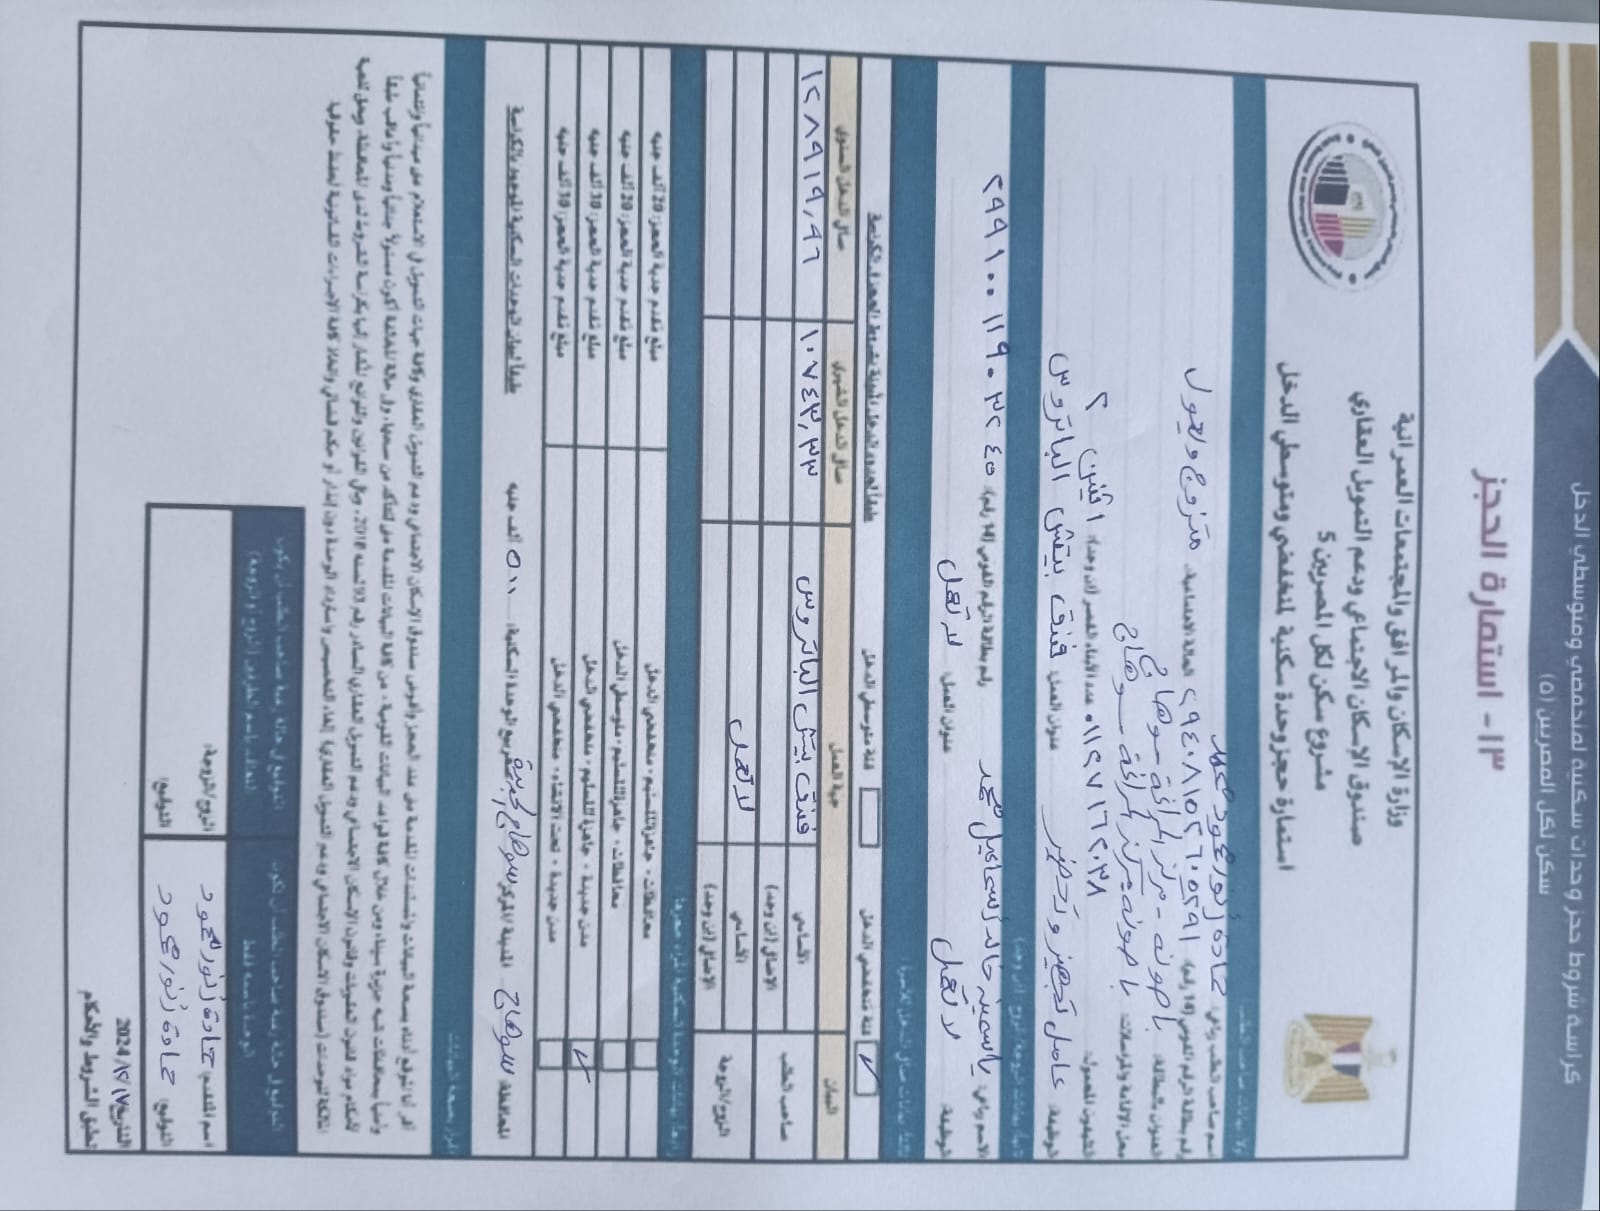 كراسة شروط حجز وحدات سكنية لمنخفضي ومتوسطي الدخل
سكن لكل المصريين (٥)
١٣- استمارة الحجز
وزارة الإسكان والمرافق والمجتمعات العمرانية
صندوق الإسكان الاجتماعي ودعم التمويل العقاري
مشروع سكن لكل المصريين 5
استمارة حجز وحدة سكنية لمنخفضي ومتوسطي الدخل
أولاً: بيانات صاحب الطلب:
اسم صاحب الطلب رباعي: حمادة أنور محمود محمد
رقم بطاقة الرقم القومي (14 رقم): ٢٩٤٠٨١٥٢٦٠٥٢٩١ الحالة الاجتماعية: متزوج ويعول
العنوان بالبطاقة: باصونه - مركز المراغة سوهاج
محل الإقامة والمراسلات: باصونه مركز المراغة سوهاج
التليفون المحمول: ٠١١٢٧١٦٢٠٣٨ عدد الأبناء القصر (إن وجد): اثنين ٢
الوظيفة: عامل تجهيز وتحضير عنوان العمل: فندق بيتش الباتروس
ثانياً: بيانات الزوجة/الزوج: (إن وجد)
الاسم رباعي: ياسمينه خالد إسماعيل محمد رقم بطاقة الرقم القومي (14 رقم): ٢٩٩١٠٠١١٩٠٣٢٤٥
الوظيفة: لا تعمل عنوان العمل: لا تعمل
ثالثاً: بيانات صافي الدخل للأسرة:
✓ فئة منخفضي الدخل فئة متوسطي الدخل طبقاً لحدود الدخل المبينة بشروط الحجز في الكراسة
البيان جهة العمل صافي الدخل الشهري صافي الدخل السنوي
صاحب الطلب الأساسي فندق بيتش الباتروس ١٠٧٤٣,٣٣ ١٢٨٩١٩,٩٦
الإضافي (إن وجد)
الزوج/الزوجة الأساسي لا تعمل
الإضافي (إن وجد)
رابعاً: بيانات الوحدة السكنية المراد حجزها:
محافظات - جاهزة للتسليم - منخفضي الدخل مبلغ مقدم جدية الحجز: 20 ألف جنيه
محافظات - جاهزة للتسليم - متوسطي الدخل مبلغ مقدم جدية الحجز: 20 ألف جنيه
✓ مدن جديدة - جاهزة للتسليم - منخفضي الدخل مبلغ مقدم جدية الحجز: 30 ألف جنيه
مدن جديدة - تحت الانشاء - منخفضي الدخل مبلغ مقدم جدية الحجز: 30 ألف جنيه
المحافظة: سوهاج المدينة/المركز سوهاج الجديدة سعر بيع الوحدة السكنية: ألف جنيه طبقاً لبيان الوحدات السكنية الموجود بالكراسة
إقرار بصحة البيانات
أقر أنا الموقع أدناه بصحة البيانات والمستندات المقدمة مني عند الحجز وأفوض صندوق الإسكان الاجتماعي ودعم التمويل العقاري وكافة جهات التمويل في الاستعلام عني ميدانياً وائتمانياً
وأمنياً بمحافظات شبه جزيرة سيناء ومن خلال كافة قواعد البيانات القومية، عن كافة البيانات المقدمة مني للتأكد من صحتها، وفي حالة المخالفة أكون مسئولاً جنائياً ومدنياً وأعاقب طبقاً
لأحكام مواد قانون العقوبات وقانون الإسكان الاجتماعي ودعم التمويل العقاري الصادر رقم 93 لسنة 2018، وباقي القوانين واللوائح المشار إليها بكراسة الشروط لدى المحافظة، ويحق للجهة
المالكة للوحدات (صندوق الاسكان الاجتماعي ودعم التمويل العقاري) إلغاء التخصيص واسترداد الوحدة دون إنذار أو حكم قضائي واتخاذ كافة الإجراءات القانونية لحفظ حقوقها.
التوقيع في حالة رغبة صاحب الطلب أن تكون الوحدة باسمه فقط
التوقيع في حالة رغبة صاحب الطلب أن يكون التعاقد باسم الطرفين (الزوج أو الزوجة)
اسم المتقدم: حمادة أنور محمود الزوج/الزوجة:
التوقيع: حمادة أنور محمود التوقيع:
التاريخ ١٧/١٢/2024
تطبق الشروط والأحكام